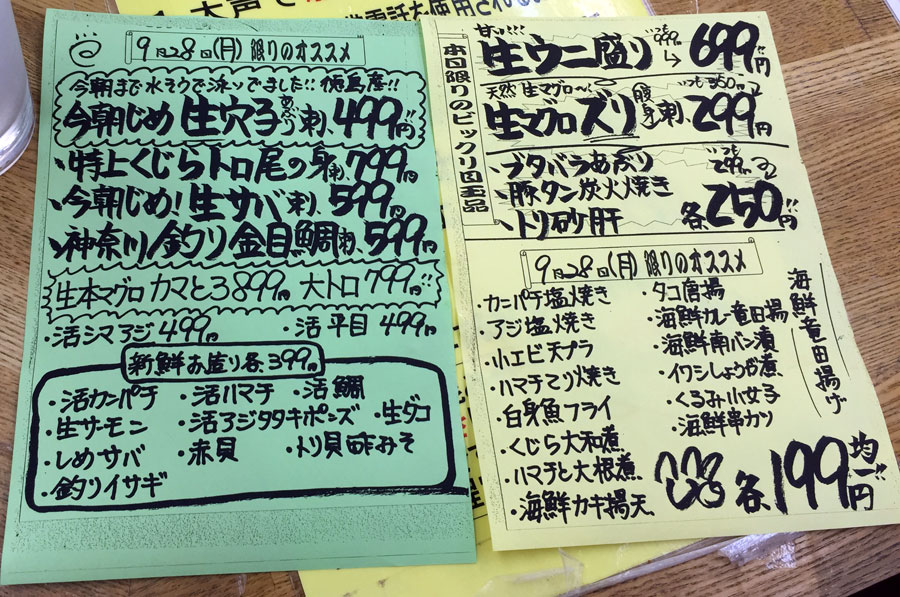 大声で
電話を使用される
9月28日(月) 限りのオススメ
今朝まで水そうで泳いでました!! 徳島産!!
今朝じめ 生穴子あぶり刺、499円!!
・特上くじらトロ尾の身刺、799円
・今朝じめ!生サバ刺、599円
・神奈川釣り金目鯛刺、599円
生本マグロカマとろ899円 大トロ799円!!
・活シマアジ499円 ・活平目499円
新鮮お造り各399円
・活カンパチ ・活ハマチ ・活鯛
・生サーモン ・活アジタタキポンズ ・生ダコ
・しめサバ ・赤貝 ・トリ貝酢みそ
・釣りイサギ
本日限りのビックリ目玉品
甘ーい!!!
生ウニ盛り いつも999円→699円!!
天然生マグロ〜、 いつも350円
生マグロズリ(腹身)刺、299円
・ブタバラあぶり いつも299円
・豚タン炭火焼き
・トリ砂肝 各250円!!
9月28日(月) 限りのオススメ
・カンパチ塩焼き
・アジ塩焼き
・小エビ天プラ
・ハマチてり焼き
・白身魚フライ
・くじら大和煮
・ハマチと大根煮
・海鮮カキ揚天
・タコ唐揚
・海鮮カレー竜田揚
・海鮮南バン漬
・イワシしょうが煮
・くるみ小女子
・海鮮串カツ
海鮮竜田揚げ
各199円均一!!